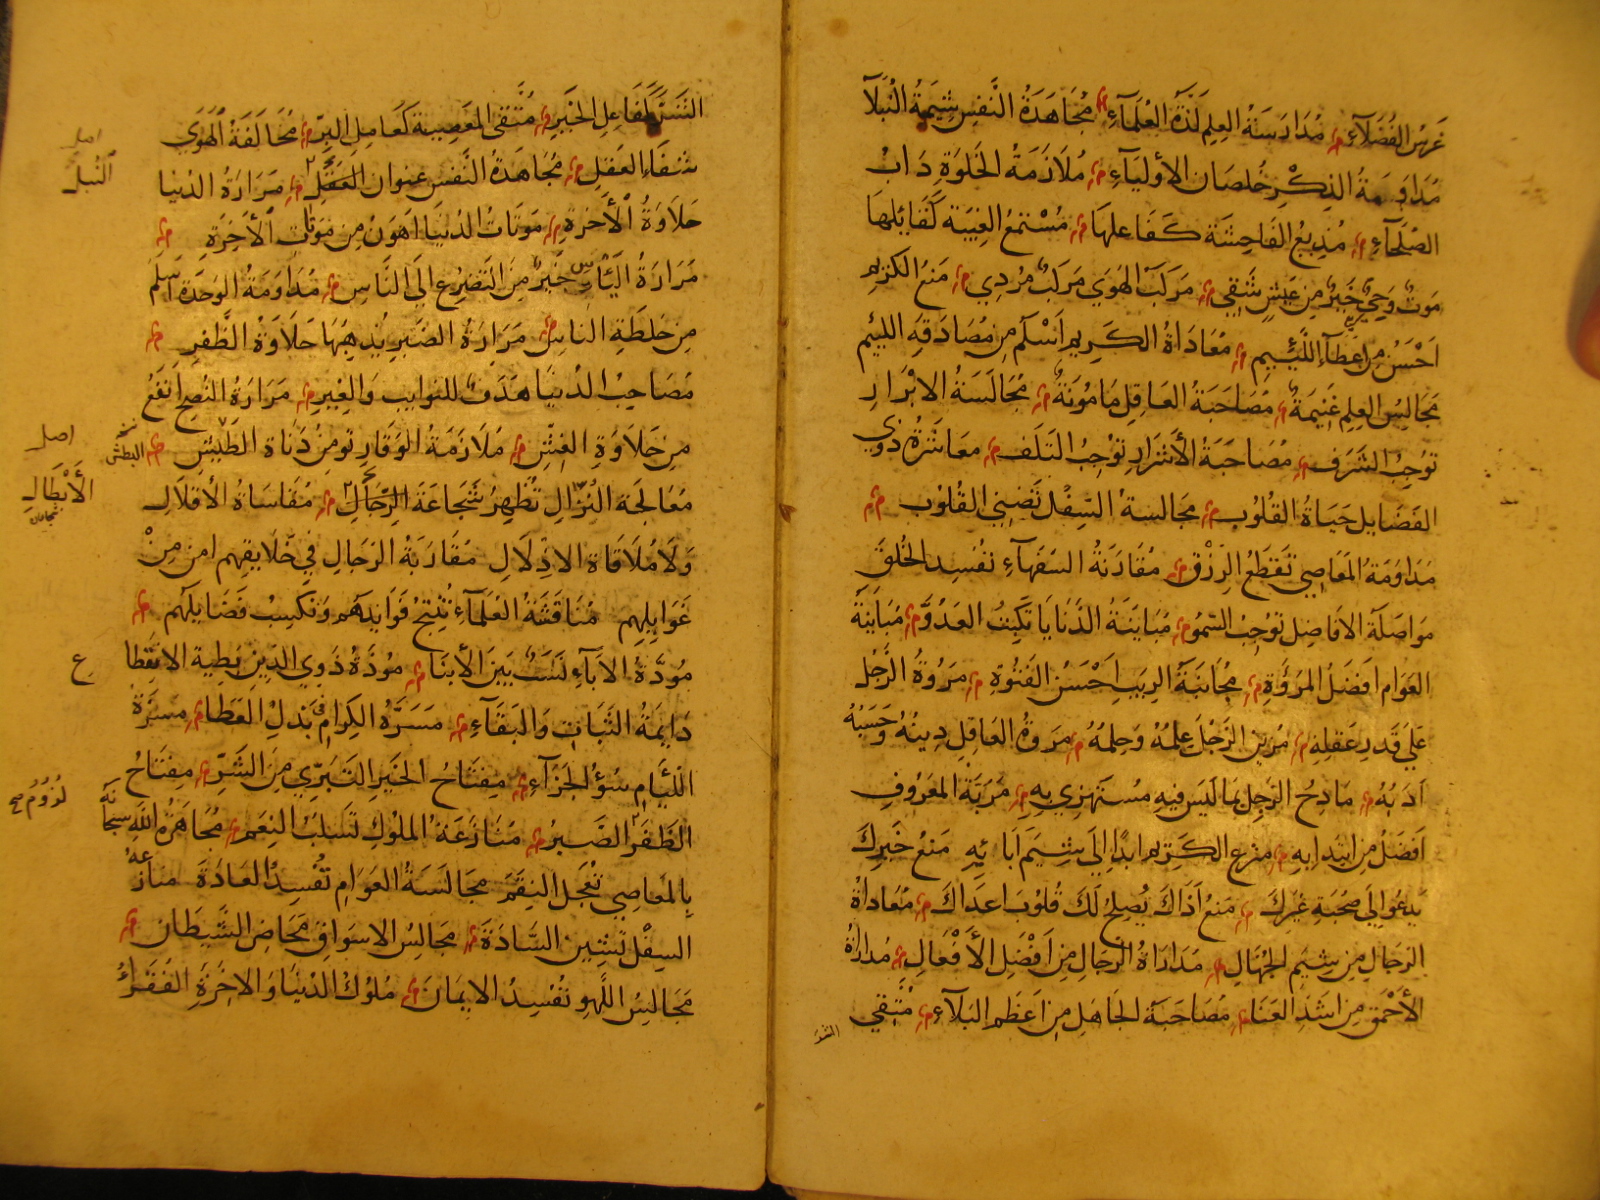 غَرسُ الفُضَلآءِ مُدَارَسَةُ العِلمِ لَذّةُ العُلَمَآءِ مُجَاهَدَةُ النَّفسِ شِيمَةُ النُبَلَآ
مُدَاوَمَةُ الذِكْرِ خُلصَان الأوليَآءِ مُلَازَمَةُ الخَلوَةِ دَابُ
الصُلَحَآءِ مُذِيعُ الفَاحِشَة كَفَاعلِهَا مُسْتَمعُ الغِيبَة كَقَايلِهَا
مَوتٌ وَحِيٌ خَيرٌ مِن عَيشٍ شَقِي مَركَبُ الهَوَي مَركَبٌ مُردِي مَنعُ الكَرِيمِ
اَحْسَنُ مِن اِعطَآءِ اللَئِيمِ مُعَادَاةُ الكَرِيم اَسْلَم مِن مُصَادَقَةِ اللئِيم
مَجَالِسُ العِلمِ غَنِيمَةٌ مُصَاحَبَةُ العَاقِلِ مَامُونَةٌ مُجَالَسَةُ الابْرَارِ
تُوجِبُ الشَرَف مُصَاحَبَةُ الأَشرَارِ تُوجِبُ التَلَف مُعَاشَرَةُ ذَوِي
الفَضَايل حَيَاةُ القُلُوبِ مَجَالسة السِفَل تَضنِي القُلُوب
مُدَاوَمَةُ المَعَاصِي تَقطَعُ الرِزْق مُقَارَنَةُ السُفَهَآءِ تفْسِد الخُلقَ
مَواصَلَة الافَاضِل تُوجِبُ السُمُوّ مُبَايَنَةُ الدَنَايَا تَكبِتُ العَدُوَّ مُبَايَنَةُ
العَوَام اَفضَلُ المرُوَّةِ مُجَانَبَةُ الرِيَبِ اَحْسَنُ الفُتُوَّةِ مَرُوَّةُ الرَّجُل
عَلَي قَدرِ عَقلِهِ مُزَيِن الرَجُلَ عِلمُهُ وَحِلمُهُ مَروَةُ العَاقِلِ دِينُهُ وَحَسَبُهُ
اَدَبُهُ مَادِحُ الرَجُلِ بِمَا لَيسَ فيِهِ مُستَهزِي بِهِ مَرَبَةُ المَعرُوفِ
اَفضَلُ مِن اِبتِدايِهِ مَنزع الكَرِيم ابدًا اِلَي شِيَم آبَايِهِ مَنعُ خَيرِكَ
يَدعُو اِلَي صُحبَةِ غَيرِكَ مَنعُ اَذَاكَ يُصلِحُ لَكَ قُلُوبَ اعدَاكَ مُعَادَاةُ
الرِجَالِ مِن شِيَم الجُهَّالِ مُدَارَاةُ الرِجَالِ مِن اَفْضَلِ الأَفْعَالِ مُدَارَاةُ
الأَحْمَقِ مِن اشَدِّ العَنَا مُصَاحَبَة الجَاهِل مِن اعظَم البَلآءِ مُتَّقِي
الشرّ
الشَرِّ كَفَاعِلِ الخَيرِ مُتَّقِي المَعصِيَة كَعَامِلِ البِرِّ مُخَالَفَةُ الهَوَي
شفَاءُ العَقلِ مُجَاهَدَةُ النَفس عنوان العَقْلِ مَرَارَةُ الدنيا
حَلَاوَةُ الأخرة مَوتَاتُ الدُنيَا اَهوَن مِن مَوتَات الأخِرَةِ
مَرَارَةُ اليَأسِ خَيرٌ مِنَ التَضَرُعِ اِلَي النَّاسِ مُدَاوَمَةُ الوَحدَة اَسلَم
مِن خلطَةِ الناسِ مَرَارَةُ الصَبرِ يُذهِبُهَا حَلَاوَةُ الظَّفرِ
مُصَاحِبُ الدنيَا هَدَفٌ للنوَايب وَالغِيَرِ مَرَارَة النُصحِ اَنفَعُ
مِن حَلَاوَةِ الغِشِّ مُلَازَمَةُ الوَقَارِ تُومِنُ دَنَاة الطَيشِ
مُعَالَجَة النُزَّالِ تُظهِرُ شَجَاعَةَ الرِجَالِ مُقَاسَاةُ الأقلَال
وَلَا مُلَاقَاة الاذِلَالِ مُقَارَبَةُ الرَجَالِ فِي خَلَايقِهِم امن مِنْ
غَوَايلِهِم مُنَاقَشَةُ العُلَمَآءِ تُنتِجُ فَوَايدَهُم وَتكسِبُ فَضَايلَهُم
مُودَّةُ الآبَآءِ نَسَبٌ بَينَ الأَبنَا مُودَّةُ ذَوِي الدِين بَطِية الانقِطَا
دَايمَةُ الثَبَاتِ وَالبَقَآءِ مَسَرَّةُ الكِرَام في بَذلِ العَطَا مسَرَّةُ
اللئَامِ سُوءُ الجَزآءِ مِفتَاحُ الخَيرِ التَبَرِّي مِنَ الشَرِّ مِفتَاحُ
الظَفَرِ الصَبرُ مُنَازَعَةُ الملوُكِ تَسلبُ النِعَم مُجَاهَرَة الله سبحانه
بِالمَعَاصِي تعَجِل النِقَمَ مجَالَسَةُ العَوَامِ تُفسِدُ العَادَةَ مُنازَعَةُ
السِفَل تَشِين السَّادَة مَجَالِسُ الاسوَاقِ مَحَاضِر الشَيطَان
مَجَالِسُ اللَّهوِ تُفْسِدُ الايمَانَ مُلوُك الدُنيَا وَالاخِرَةِ الفُقَرَاءُ
اصل
النُبل
البَطش
اصل
الأَبْطَالِ
شجاعان
ع
لزُومُ صح